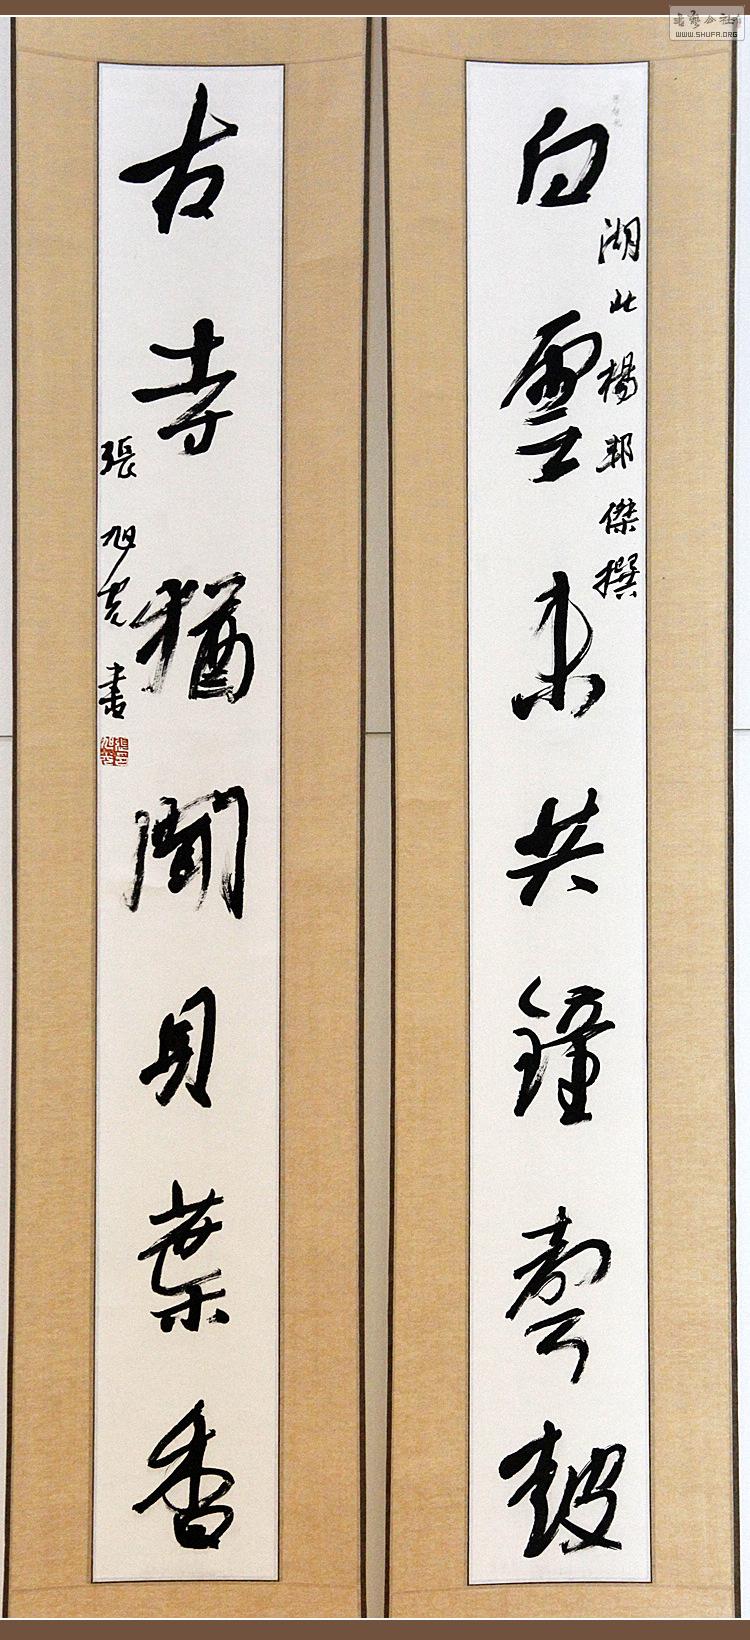 书艺公社
WWW.SHUFA.ORG
湖北楊邦傑撰
白雲未共鐘聲
古寺猶聞貝葉香
張旭光書